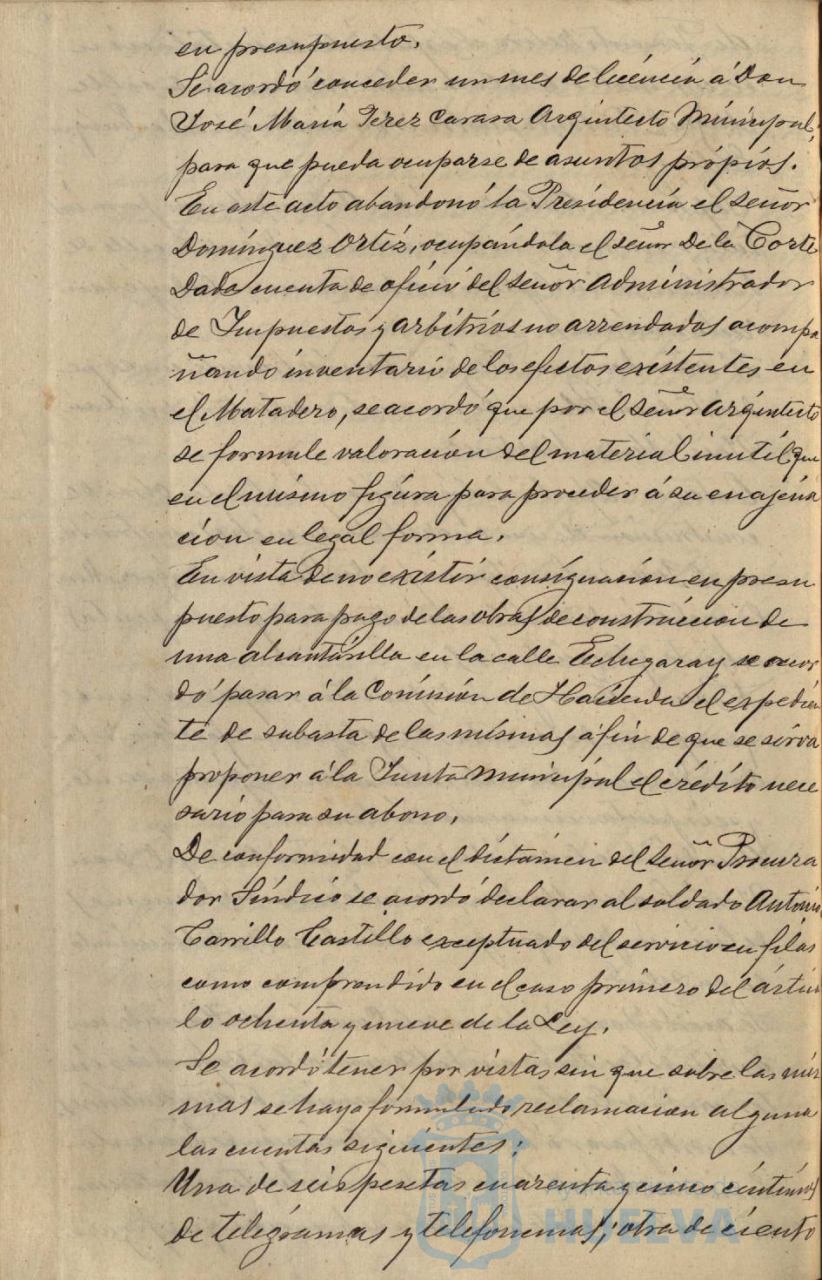 en presupuesto.
Se acordó conceder un mes de licencia á Don
José María Perez Carasa Arquitecto Municipal,
para que pueda ocuparse de asuntos própios.
En este acto abandonó la Presidencia el señor
Domínguez Ortíz, ocupándola el señor De la Corte
Dada cuenta de oficio del señor Administrador
de Impuestos y arbítrios no arrendados acompa
ñando inventario de los efectos existentes en
el Matadero, se acordó que por el señor Arquitecto
se formule valoración del material inutil que
en el mismo figura para proceder á su enajena
cion en legal forma.
En vista de no existir consignación en presu
puesto para pago de las obras de construccion de
una alcantarilla en la calle Echegaray se acor
dó pasar á la Comisión de Hacienda el expedien
te de subasta de las mismas á fin de que se sirva
proponer á la Junta Municipal el crédito nece
sario para su abono.
De conformidad con el dictámen del señor Procura
dor Síndico se acordó declarar al soldado Antonio
Carrillo Castillo exceptuado del servicio en filas
como comprendido en el caso primero del artícu
lo ochenta y nueve de la Ley.
Se acordó tener por vistas sin que sobre las mis
mas se haya formulado reclamacion alguna
las cuentas siguientes:
Una de seis pesetas cuarenta y cinco céntimos
de telegramas y telefonemas; otra de ciento
HUELVA